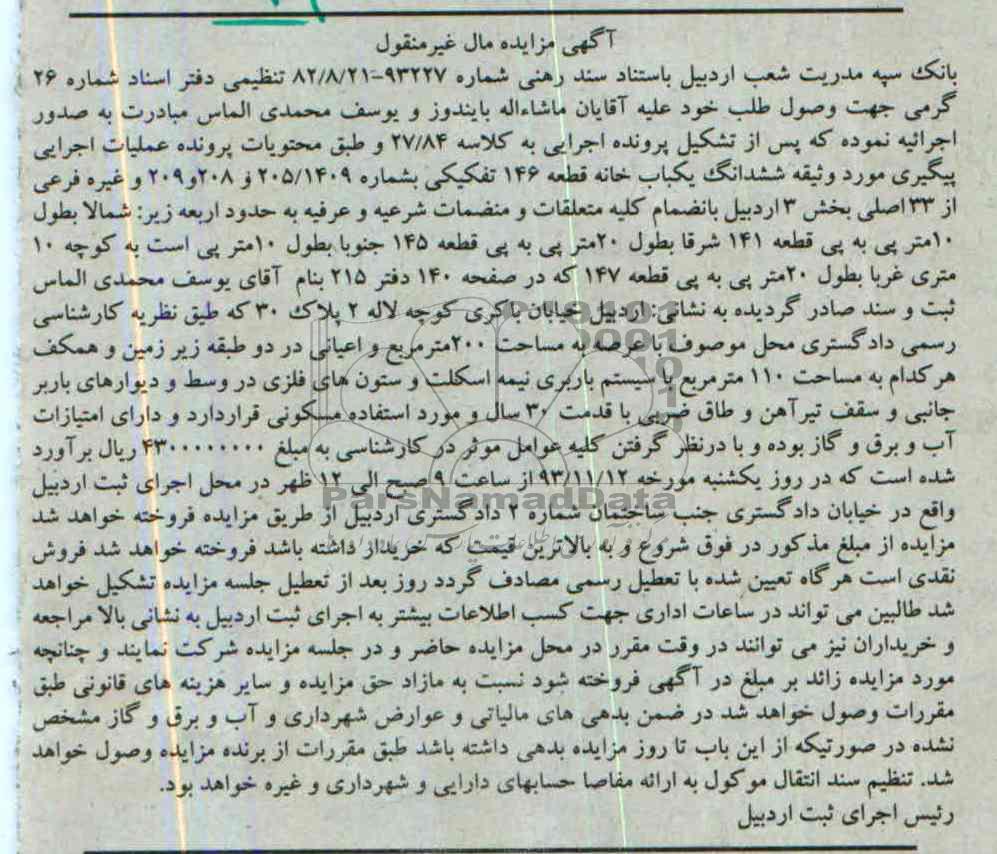 آگهی مزایده مال غیرمنقول
بانک سپه مدریت شعب اردبیل باستناد سند رهنی شماره ۹۳۲۲۷-۸۲/۸/۲۱ تنظیمی دفتر اسناد شماره ۲۶
گرمی جهت وصول طلب خود علیه آقایان ماشاءاله بایندوز و یوسف محمدی الماس مبادرت به صدور
اجرائیه نموده که پس از تشکیل پرونده اجرایی به کلاسه ۲۷/۸۴ و طبق محتویات پرونده عملیات اجرایی
پیگیری مورد وثیقه ششدانگ یکباب خانه قطعه ۱۴۶ تفکیکی بشماره ۲۰۵/۱۴۰۹ و ۲۰۸و۲۰۹ و غیره فرعی
از ۳۳اصلی بخش ۳ اردبیل بانضمام کلیه متعلقات و منضمات شرعیه و عرفیه به حدود اربعه زیر: شمالا بطول
۱۰متر پی به پی قطعه ۱۴۱ شرقا بطول ۲۰متر پی به پی قطعه ۱۴۵ جنوبا بطول ۱۰متر پی است به کوچه ۱۰
متری غربا بطول ۲۰متر پی به پی قطعه ۱۴۷ که در صفحه ۱۴۰ دفتر ۲۱۵ بنام آقای یوسف محمدی الماس
ثبت و سند صادر گردیده به نشانی: اردبیل خیابان باکری کوچه لاله ۲ پلاک ۳۰ که طبق نظریه کارشناسی
رسمی دادگستری محل موصوف با عرصه به مساحت ۲۰۰مترمربع و اعیانی در دو طبقه زیر زمین و همکف
هرکدام به مساحت ۱۱۰ مترمربع با سیستم باربری نیمه اسکلت و ستون های فلزی در وسط و دیوارهای باربر
جانبی و سقف تیرآهن و طاق ضربی با قدمت ۳۰ سال و مورد استفاده مسکونی قراردارد و دارای امتیازات
آب و برق و گاز بوده و با درنظر گرفتن کلیه عوامل موثر در کارشناسی به مبلغ ۴۳۰۰۰۰۰۰۰۰ ریال برآورد
شده است که در روز یکشنبه مورخه ۹۳/۱۱/۱۲ از ساعت ۹ صبح الی ۱۲ ظهر در محل اجرای ثبت اردبیل
ParsNamadData
واقع در خیابان دادگستری جنب ساختمان شماره ۲ دادگستری اردبیل از طریق مزایده فروخته خواهد شد
مزایده از مبلغ مذکور در فوق شروع و به بالاترین قیمت که خریدار داشته باشد فروخته خواهد شد فروش
نقدی است هرگاه تعیین شده با تعطیل رسمی مصادف گردد روز بعد از تعطیل جلسه مزایده تشکیل خواهد
شد طالبین می تواند در ساعات اداری جهت کسب اطلاعات بیشتر به اجرای ثبت اردبیل به نشانی بالا مراجعه
و خریداران نیز می توانند در وقت مقرر در محل مزایده حاضر و در جلسه مزایده شرکت نمایند و چنانچه
مورد مزایده زائد بر مبلغ در آگهی فروخته شود نسبت به مازاد حق مزایده و سایر هزینه های قانونی طبق
مقررات وصول خواهد شد در ضمن بدهی های مالیاتی و عوارض شهرداری و آب و برق و گاز مشخص
نشده در صورتیکه از این باب تا روز مزایده بدهی داشته باشد طبق مقررات از برنده مزایده وصول خواهد
شد. تنظیم سند انتقال موکول به ارائه مفاصا حسابهای دارایی و شهرداری و غیره خواهد بود.
رئیس اجرای ثبت اردبیل